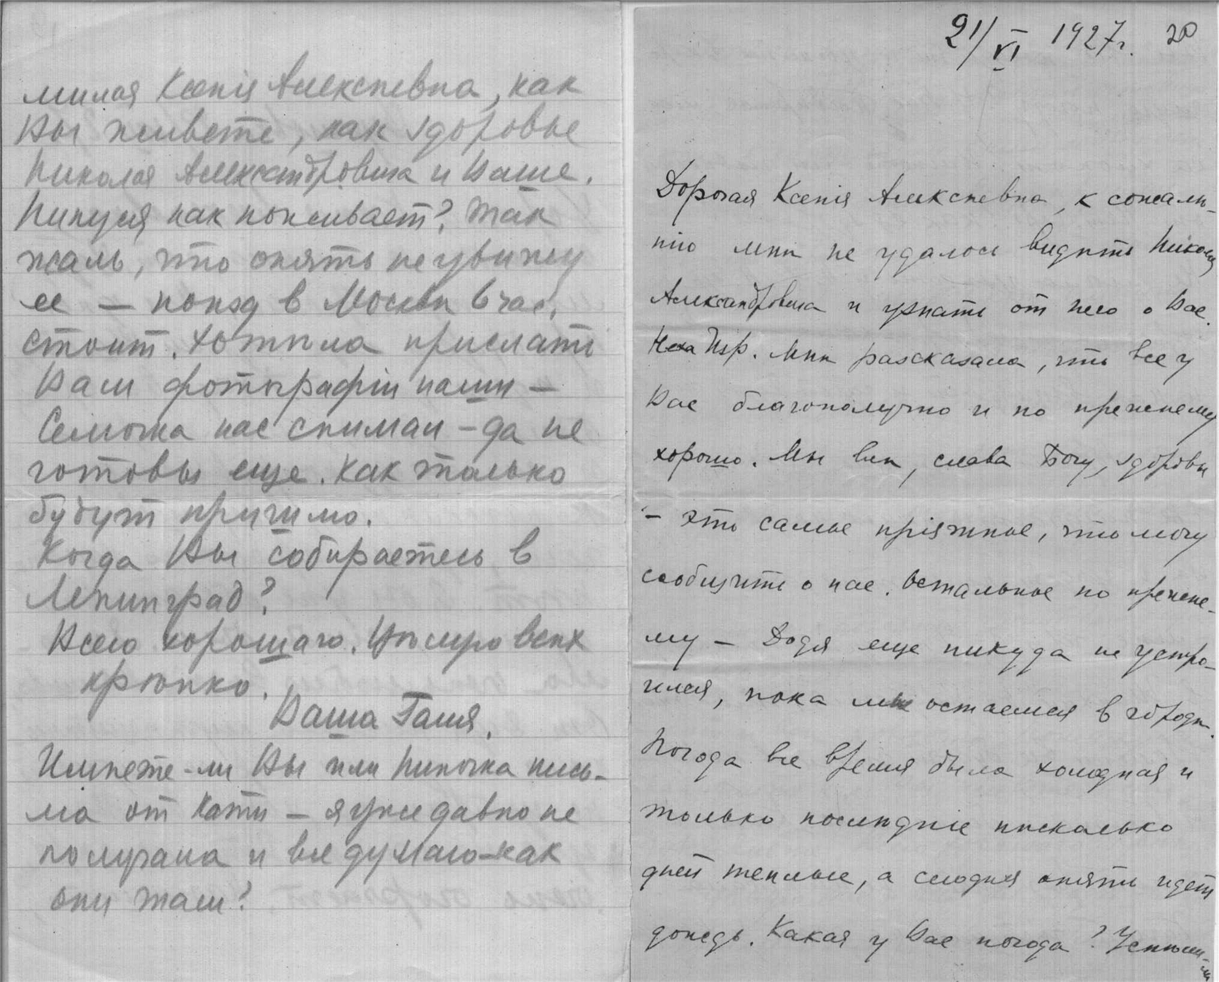 милая Ксенiя Алексѣевна, как
Вы живете, как здоровье
Николая Александровича и Ваше.
Нинуся как поживает? Так
жаль, что опять не увижу
ее — поѣзд в Москвѣ 6 час.
стоит. Хотѣла прислать
Вам фотографiи наши —
Семочка нас снимал — да не
готовы еще. Как только
будут пришлю.
Когда Вы собираетесь в
Ленинград?
Всего хорошаго. Цѣлую всѣх
крѣпко.
Ваша Галя.
Имѣете-ли Вы или Ниночка пись-
ма от Кати — я уже давно не
получала и все думаю-как
они там?
21/VI 1927г. 20
Дорогая Ксенiя Алексѣевна, к сожалѣ-
нiю мнѣ не удалось видѣть Никол
Александровича и узнать от него о Вас.
Изр. мнѣ разсказала, что все у
Вас благополучно и по прежнему
хорошо. Мы всѣ, слава Богу, здоровы
— это самое прiятное, что могу
сообщить о нас. Остальное по прежне-
му — Додя еще никуда не устро-
ился, пока мы остаемся в городѣ.
Погода все время была холодная и
только послѣднiе нѣсколько
дней теплые, а сегодня опять идет
дождь. Какая у Вас погода?